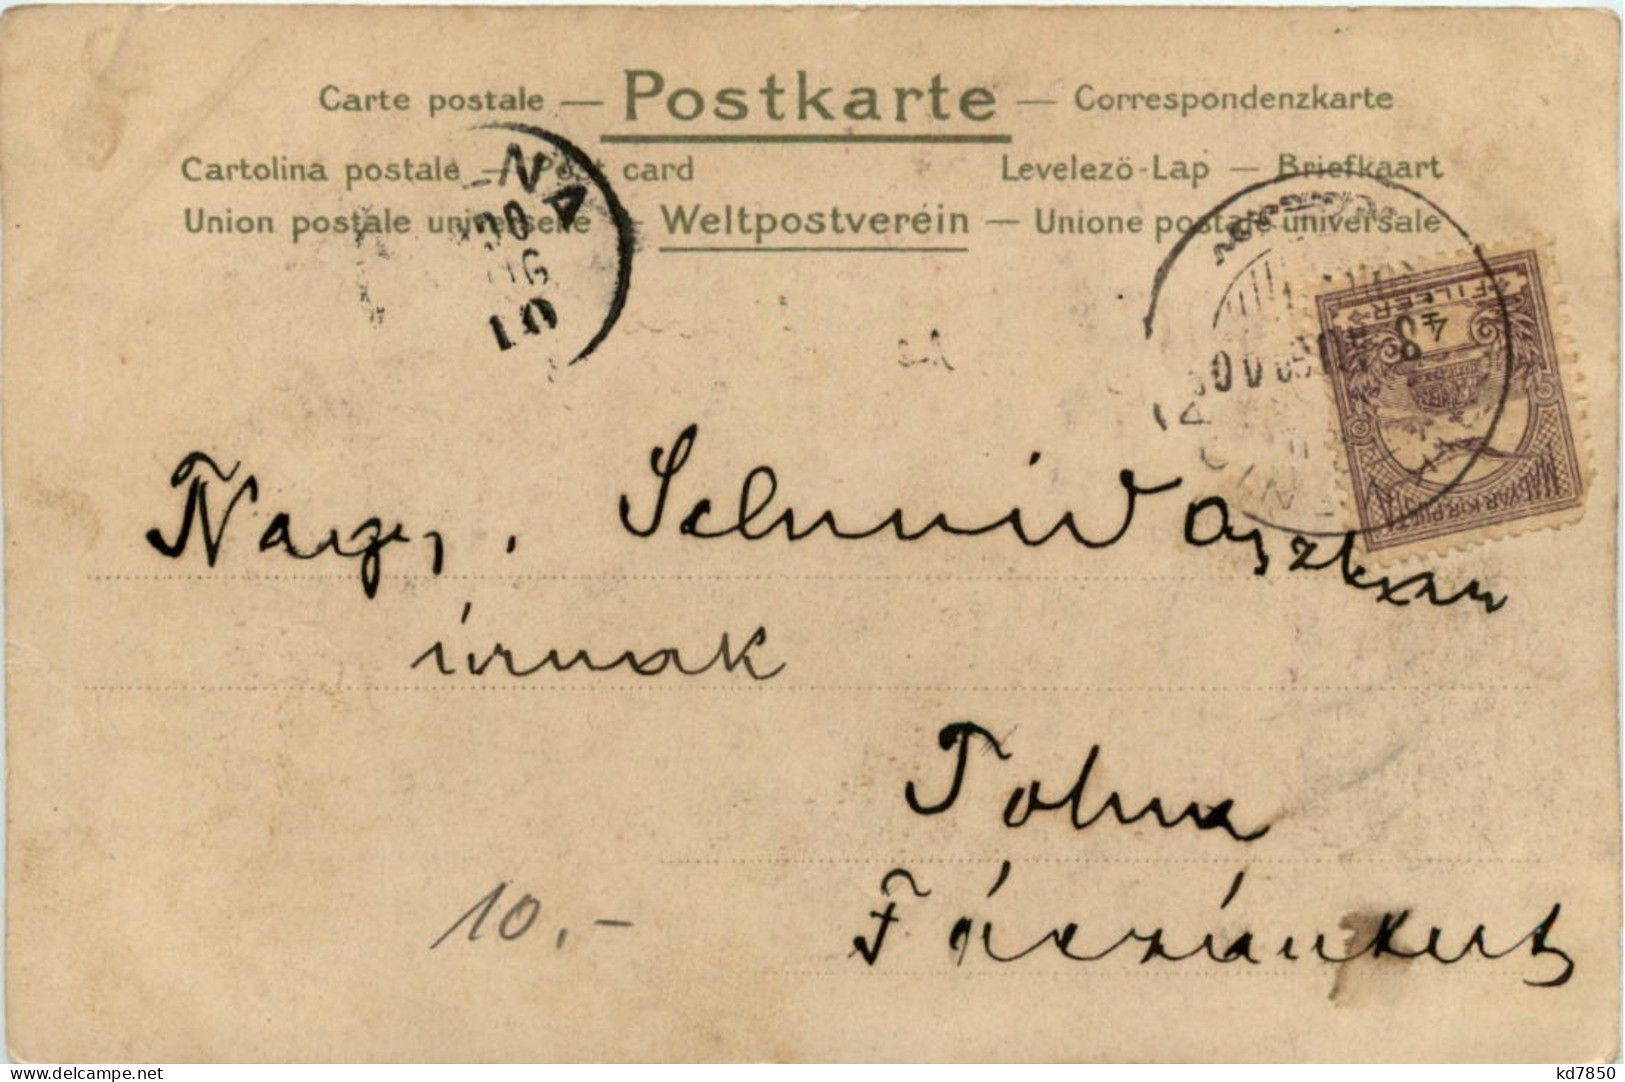 Carte postale — Postkarte — Correspondenzkarte
Cartolina postale — Post card Levelezö-Lap — Briefkaart
Union postale universelle — Weltpostverein — Unione postale universale
NA
10
FILLER
MAGYAR KIR. POSTA
Nagys. Schmid
úrnak
Tolna
Fáczánkert
10.-
delcampe.net
kd7850